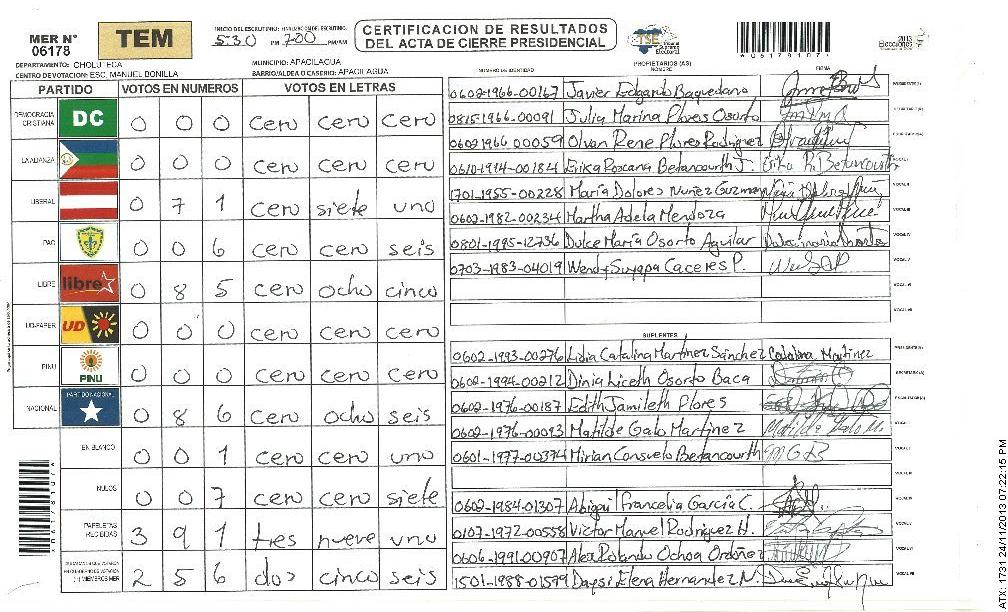 MER N° 06178
TEM
INICIO DEL ESCRUTINIO: 5:30 PM
7:00 PM/AM
CERTIFICACION DE RESULTADOS
DEL ACTA DE CIERRE PRESIDENCIAL
TSE
Tribunal Supremo Electoral
2013
Elecciones
DEPARTAMENTO: CHOLUTECA
MUNICIPIO: APACILAGUA
CENTRO DE VOTACION: ESC. MANUEL BONILLA
BARRIO/ALDEA O CASERIO: APACILAGUA
PARTIDO VOTOS EN NUMEROS VOTOS EN LETRAS
DEMOCRACIA CRISTIANA DC 0 0 0 cero cero cero
LA ALIANZA 0 0 0 cero cero cero
LIBERAL 0 7 1 cero siete uno
PAC 0 0 6 cero cero seis
LIBRE libre 0 8 5 cero ocho cinco
UD-FAPER UD 0 0 0 cero cero cero
PINU PINU 0 0 0 cero cero cero
NACIONAL PARTIDO NACIONAL 0 8 6 cero ocho seis
EN BLANCO 0 0 1 cero cero uno
NULOS 0 0 7 cero cero siete
PAPELETAS RECIBIDAS 3 9 1 tres nueve uno
2 5 6 dos cinco seis
PROPIETARIOS (AS)
NUMERO DE IDENTIDAD NOMBRE FIRMA
0602-1966-00167 Javier Edgardo Baquedano
0815-1966-00091 Julia Marina Flores Osorto
0602-1966-00059 Olvan Rene Flores Rodriguez
0610-1994-00184 Erika Roxana Betancourth J. Erika R. Betancourth
1701-1955-00228 María Dolores Nuñez Guzman
0602-1982-00234 Martha Adela Mendoza
0801-1995-12736 Dulce María Osorto Aguilar
0703-1983-04019 Wendy Suyapa Caceres P.
SUPLENTES
0602-1993-00276 Lidia Catalina Martinez Sánchez Catalina Martinez
0602-1994-00212 Dinia Liceth Osorto Baca
0602-1976-00187 Edith Jamileth Flores
0602-1976-00093 Matilde Galo Martinez Matilde Galo M.
0601-1977-00374 Mirian Consuelo Betancourth MGB
0602-1984-01307 Abigail Francelia García C.
0107-1972-00558 Victor Manuel Rodriguez H.
0606-1991-00907 Alex Rolando Ochoa Ordoñez
1501-1988-01599 Daysi Elena Hernandez N.
ATX: 1731 24/11/2013 07:22:15 PM